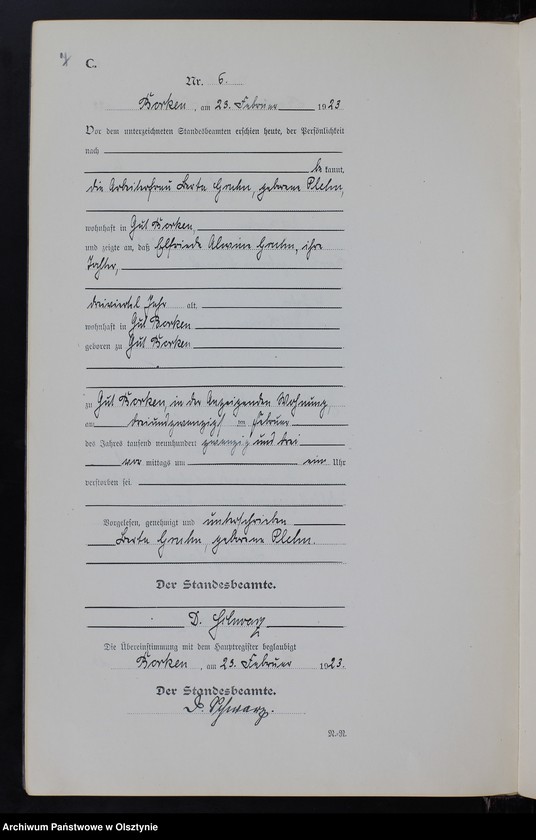 C.
Nr. 6.
Borken, am 23. Februar 1923
Vor dem unterzeichneten Standesbeamten erschien heute, der Persönlichkeit
nach
be kannt,
die Arbeiterfrau Berta, geborene Plehn,
wohnhaft in Gut Borken,
und zeigte an, daß Elfriede Alwine, ihre
Tochter,
dreiviertel Jahr alt,
wohnhaft in Gut Borken
geboren zu Gut Borken
zu Gut Borken, in der Anzeigenden Wohnung,
am dreiundzwanzigsten Februar
des Jahres tausend neunhundert zwanzig und drei
vor mittags um ein Uhr
verstorben sei.
Vorgelesen, genehmigt und unterschrieben
Berta, geborene Plehn.
Der Standesbeamte.
D.
Die Übereinstimmung mit dem Hauptregister beglaubigt
Borken, am 23. Februar 1923.
Der Standesbeamte.
D. Schwarz.
N.-N.
Archiwum Państwowe w Olsztynie